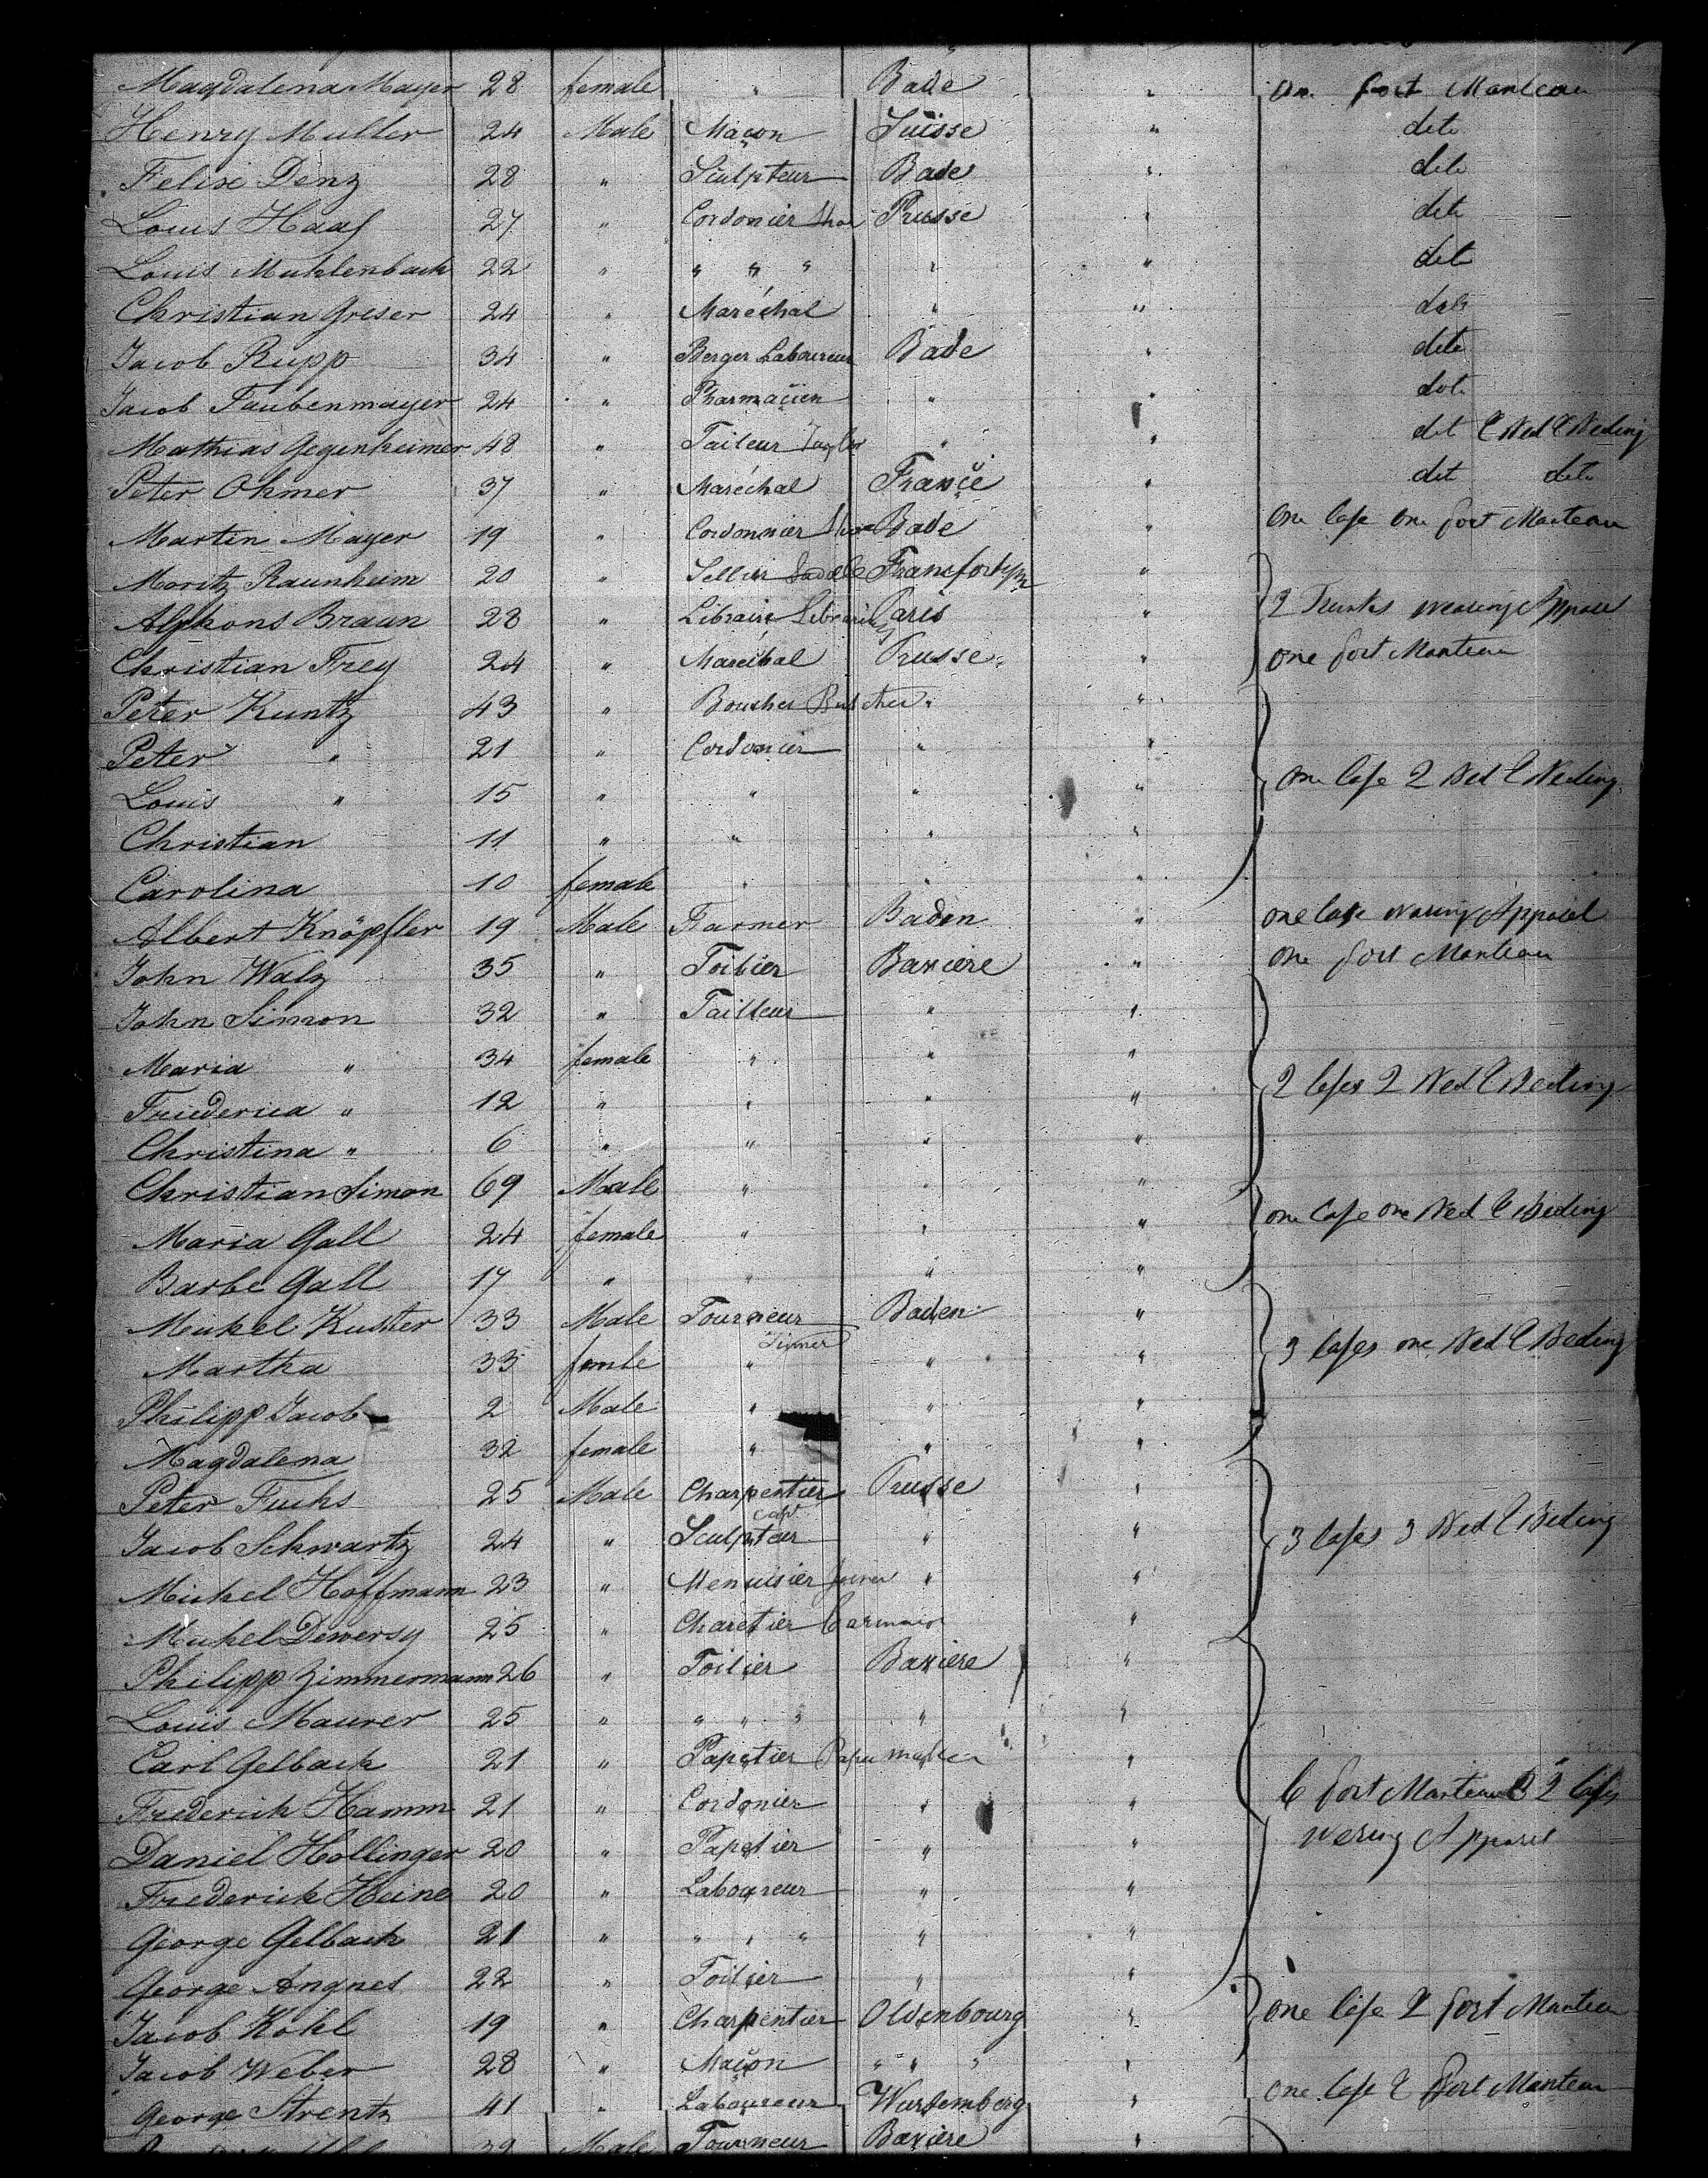 Magdalena Mayer 28 female " Bade " One Port Manteau
Henry Muller 24 Male Maçon Suisse " deto
Felix Denz 28 " Sculpteur Bade " deto
Louis Haas 27 " Cordonier Shoe Prusse " deto
Louis Muhlenbach 22 " " " " " " deto
Christian Griser 24 " Maréchal " " deto
Jacob Rupp 34 " Berger Laboureur Bade " deto
Jacob Taubenmayer 24 " Pharmacien " " deto
Mathias Gegenheimer 48 " Taileur Taylor " " det & Bed & Beding
Peter Ohmer 37 " Maréchal France " det deto
Martin Mayer 19 " Cordonnier Shoe Bade " One Case one Port Manteau
Moritz Raunheim 20 " Sellier Saddle Francfort s/m "
Alphons Braun 28 " Libraire Paris " 2 Trunks wearing Apparel
Christian Frey 24 " Maréchal Prusse " one Port Manteau
Peter Kuntz 43 " Boucher Butcher " "
Peter " 21 " Cordonier " "
Louis " 15 " " " " one Case 2 Bed & Beding
Christian 11 " " " "
Carolina 10 female " " "
Albert Knöpfler 19 Male Farmer Baden " one Case wearing Apparel
John Walz 35 " Toilier Baviere " One Port Manteau
John Simon 32 " Tailleur " "
Maria " 34 female " " "
Friederica " 12 " " " " 2 Cases 2 Bed & Beding
Christina " 6 " " " "
Christian Simon 69 Male " " "
Maria Gall 24 female " " " one Case one Bed & Beding
Barbe Gall 17 " " " "
Michel Kuster 33 Male Tourneur Baden "
Martha 33 femle " " " 3 Cases one Bed & Beding
Philipp Jacob 2 Male " " "
Magdalena 32 female " " "
Peter Fuchs 25 Male Charpentier Prusse "
Jacob Schwartz 24 " Sculpteur " " 3 Cases 3 Bed & Beding
Michel Hoffmann 23 " Menuisier joiner " "
Michel Dewersy 25 " Charetier "
Philipp Zimmermann 26 " Toilier Baviere "
Louis Maurer 25 " " " " " "
Carl Gelbach 21 " Papetier Paper maker " "
Frederich Hamm 21 " Cordonier " " 6 Port Manteau 2 Cases
Daniel Hollinger 20 " Papetier " " wering Apparel
Frederich Heine 20 " Laboureur " "
George Gelbach 21 " " " " " "
George Angnes 22 " Toilier " "
Jacob Kohl 19 " Charpentier Oldenbourg " one Case 2 Port Manteau
Jacob Weber 28 " Maçon " " " "
George Strentz 41 " Laboureur Wurtemberg " One Case & Port Manteau
39 Male Tourneur Baviere "